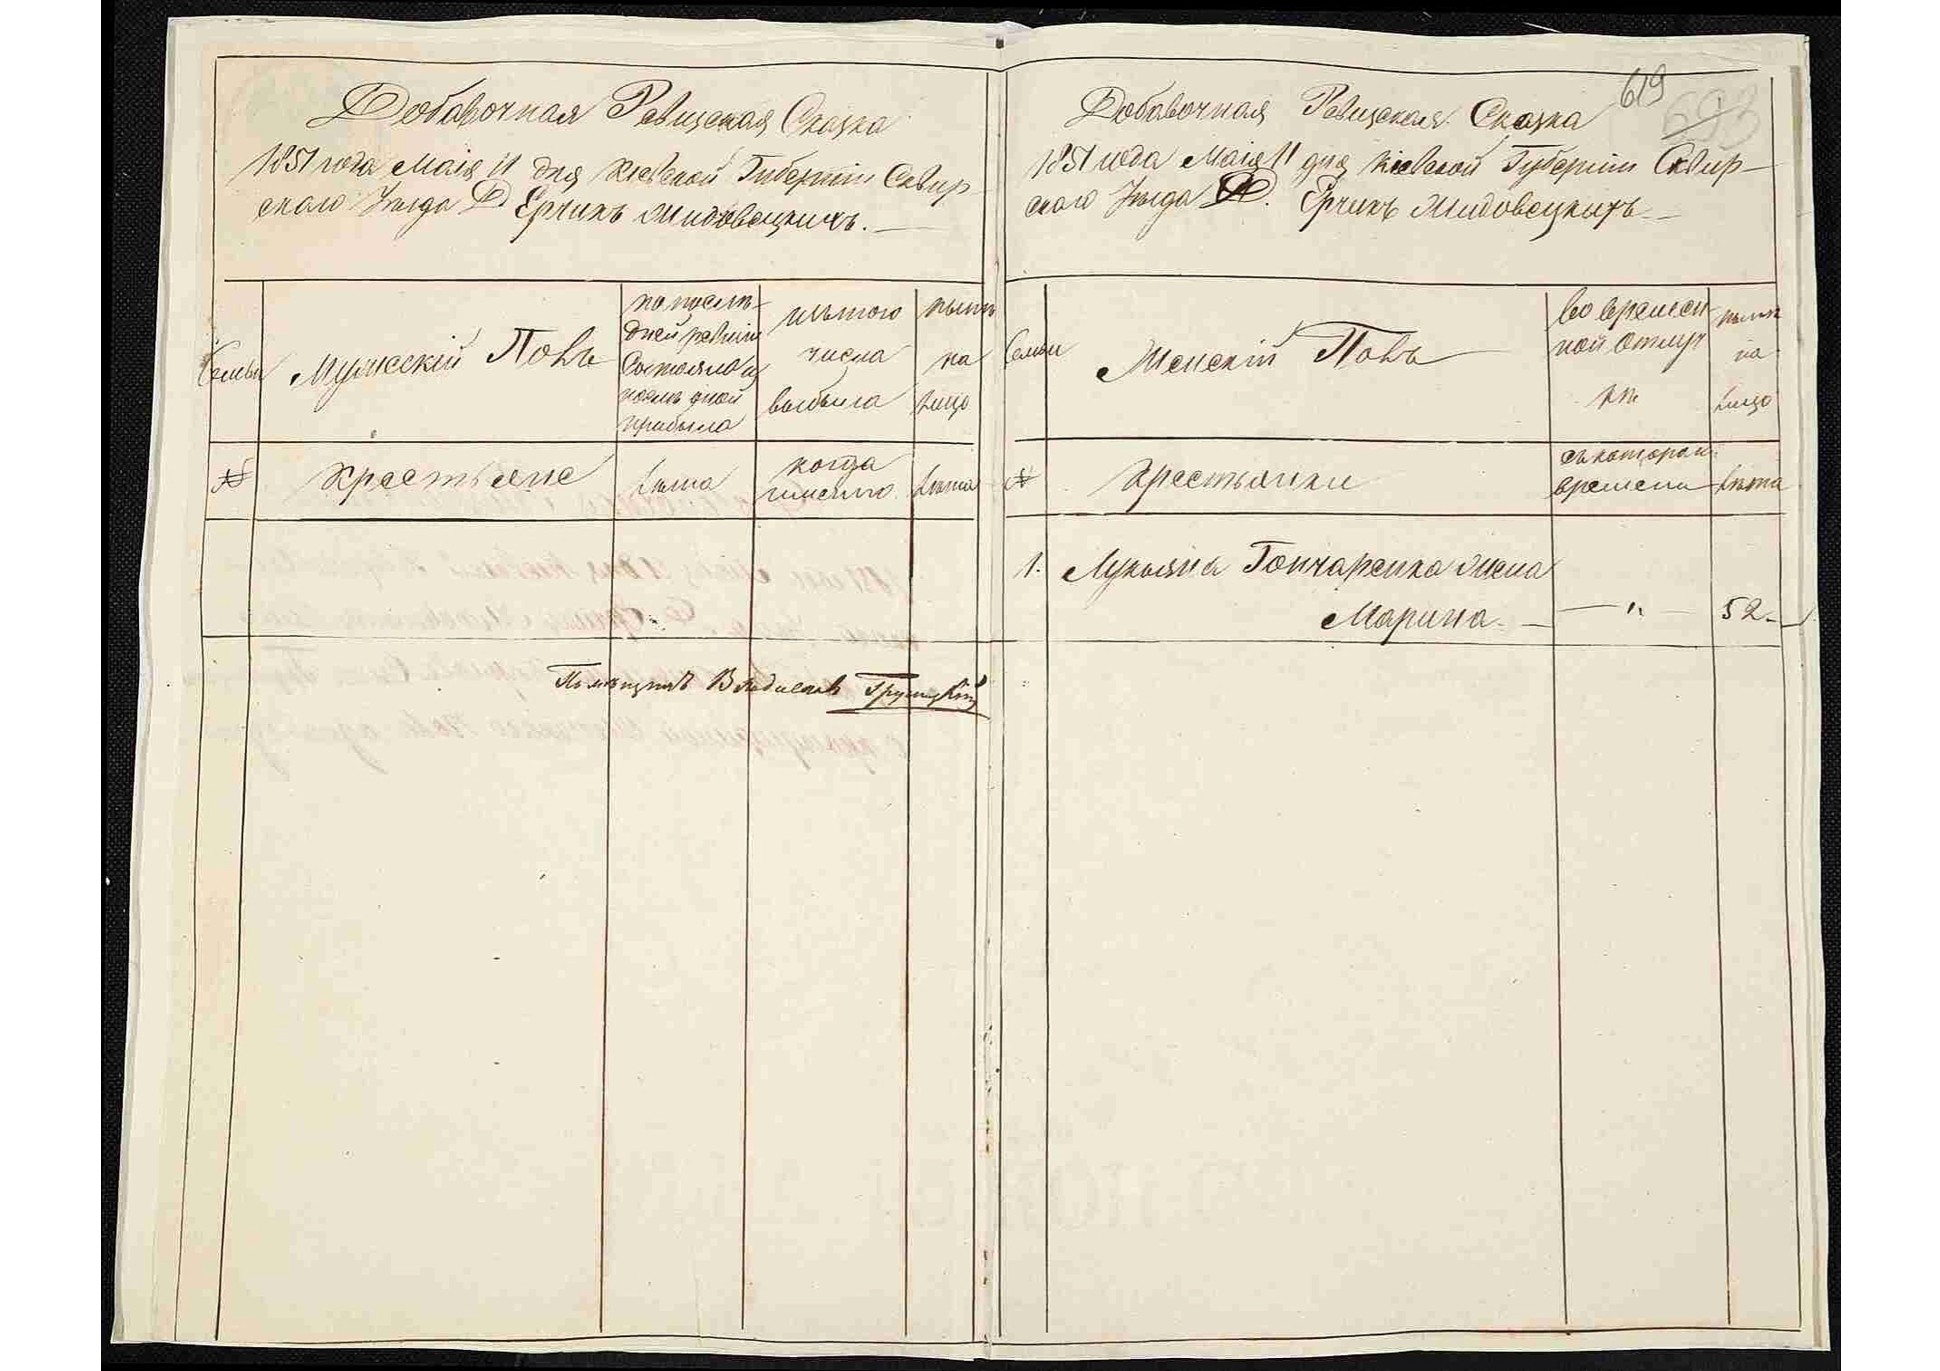 Добавочная Ревизская Сказка
1851 года Маія 11 дня Кіевской Губерніи Сквир-
скаго Уезда Д. Ерчикъ Мидовецкихъ.
Семьи
Мужескій Полъ
по послѣ-
дней ревизіи
Состояло и
послѣ оной
прибыло
изъ того
числа
выбыло
нынѣ
на
лицо
№
Крестьяне
Лѣта
когда
именно
Лѣта
Помѣщикъ Владиславъ
619
693
Добавочная Ревизская Сказка
1851 года Маія 11 дня Кіевской Губерніи Сквир-
скаго Уезда Д. Ерчикъ Мидовецкихъ
Семьи
Женскій Полъ
во времен-
ной отлуч
кѣ
нынѣ
на
лицо
№
Крестьянки
съ котораго
времени
Лѣта
1. Лукьяна Гончаренка жена
Марина — " — 52